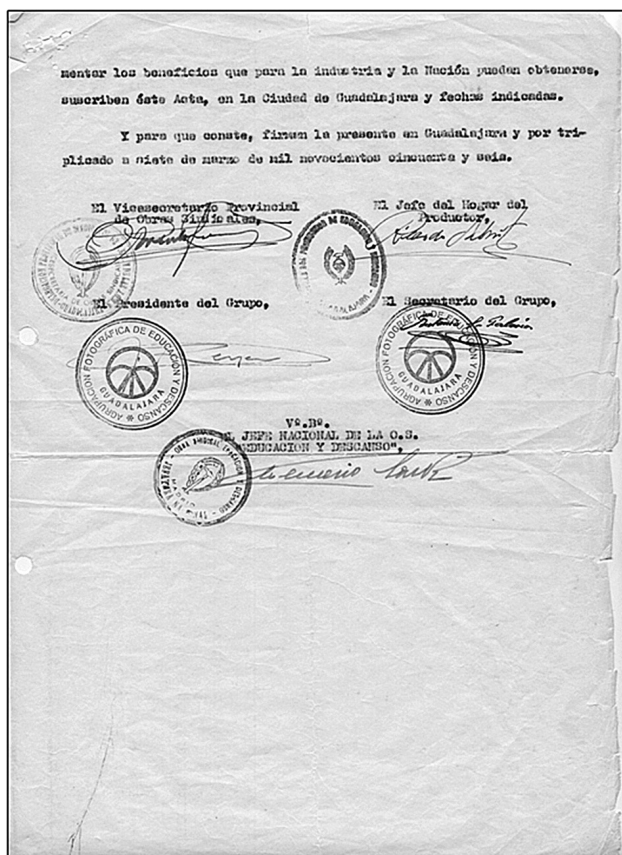 mentar los beneficios que para la industria y la Nación puedan obtenerse,
suscriben ésta Acta, en la Ciudad de Guadalajara y fechas indicadas.
Y para que conste, firman la presente en Guadalajara y por tri-
plicado a siete de marzo de mil novecientos cincuenta y seis.
El Vicesecretario Provincial
de Obras Sindicales,
El Jefe del Hogar del
Productor,
El Presidente del Grupo,
El Secretario del Grupo,
AGRUPACION FOTOGRÁFICA DE EDUCACIÓN Y DESCANSO
GUADALAJARA
AGRUPACION FOTOGRÁFICA DE EDUCACIÓN Y DESCANSO
GUADALAJARA
Vº.Bº.
EL JEFE NACIONAL DE LA O.S.
"EDUCACION Y DESCANSO",